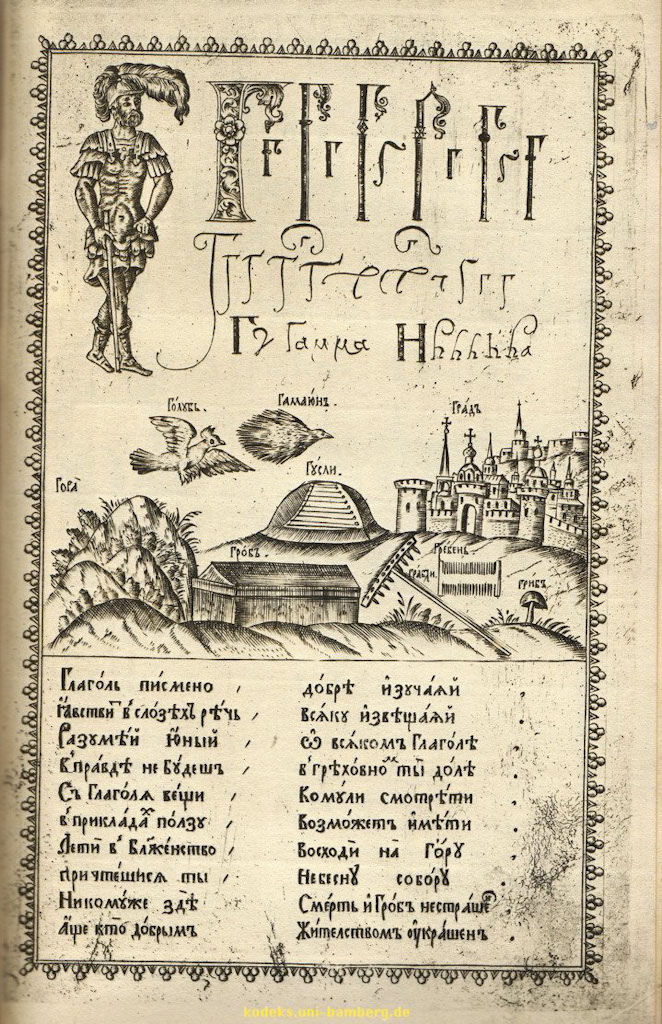 Г Г Г Г Г Г Г Г
Г Гамма Н
Го́лубь. Гамаю́нъ. Гра́дъ
Гора̀ Гу́сли.
Гро́бъ. Гра́бли. Гре́бень. Гри́бъ
Глаго́ль пи́смено , до́брѣ и҆зуча́ѧй ,
в̾ сло́зѣхъ рѣ́чь , всѧ́ку и҆звѣща́ѧй .
Разꙋмѣ́й ю҆́ный , ѿ всѧ́комъ Глаго́лѣ
в̾пра́вдѣ не бꙋ́дешъ , в̾грѣхо́вно ты̀ до́лѣ .
Съ Глаго́лѧ ве́щи , Комꙋ́ли смотрѣ́ти .
в̾прикла́дахъ по́лзꙋ , Возмо́жетъ и҆мѣ́ти
Летѝ в̾ Блаже́нство , Восходѝ на̀ Го́рꙋ
причте́шисѧ ты̀ , Небе́снꙋ собо́рꙋ .
Никомꙋ́же здѣ̀ Сме́рть и҆ Гро́бъ нестра́шенъ
а҆́ще кто̀ до́брымъ Жи́телствомъ ᲂу҆кра́шенъ .
kodeks.uni-bamberg.de